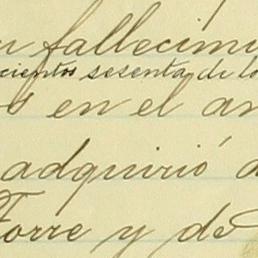 fallecimi
cientos sesenta de lo
s en el an
adquirió a
Torre y de